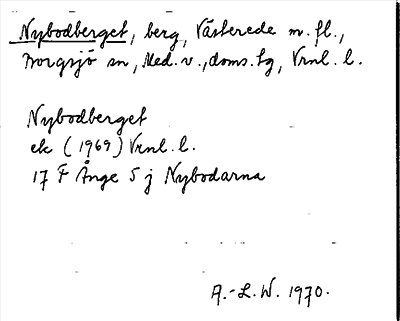 Nybodberget, berg, Västerede m. fl.,
Borgsjö sn, Med. v., doms. tg, Vrnl. l.
Nybodberget
ek (1969) Vrnl. l.
17 F Ånge 5 j Nybodarna
A.-L. W. 1970.